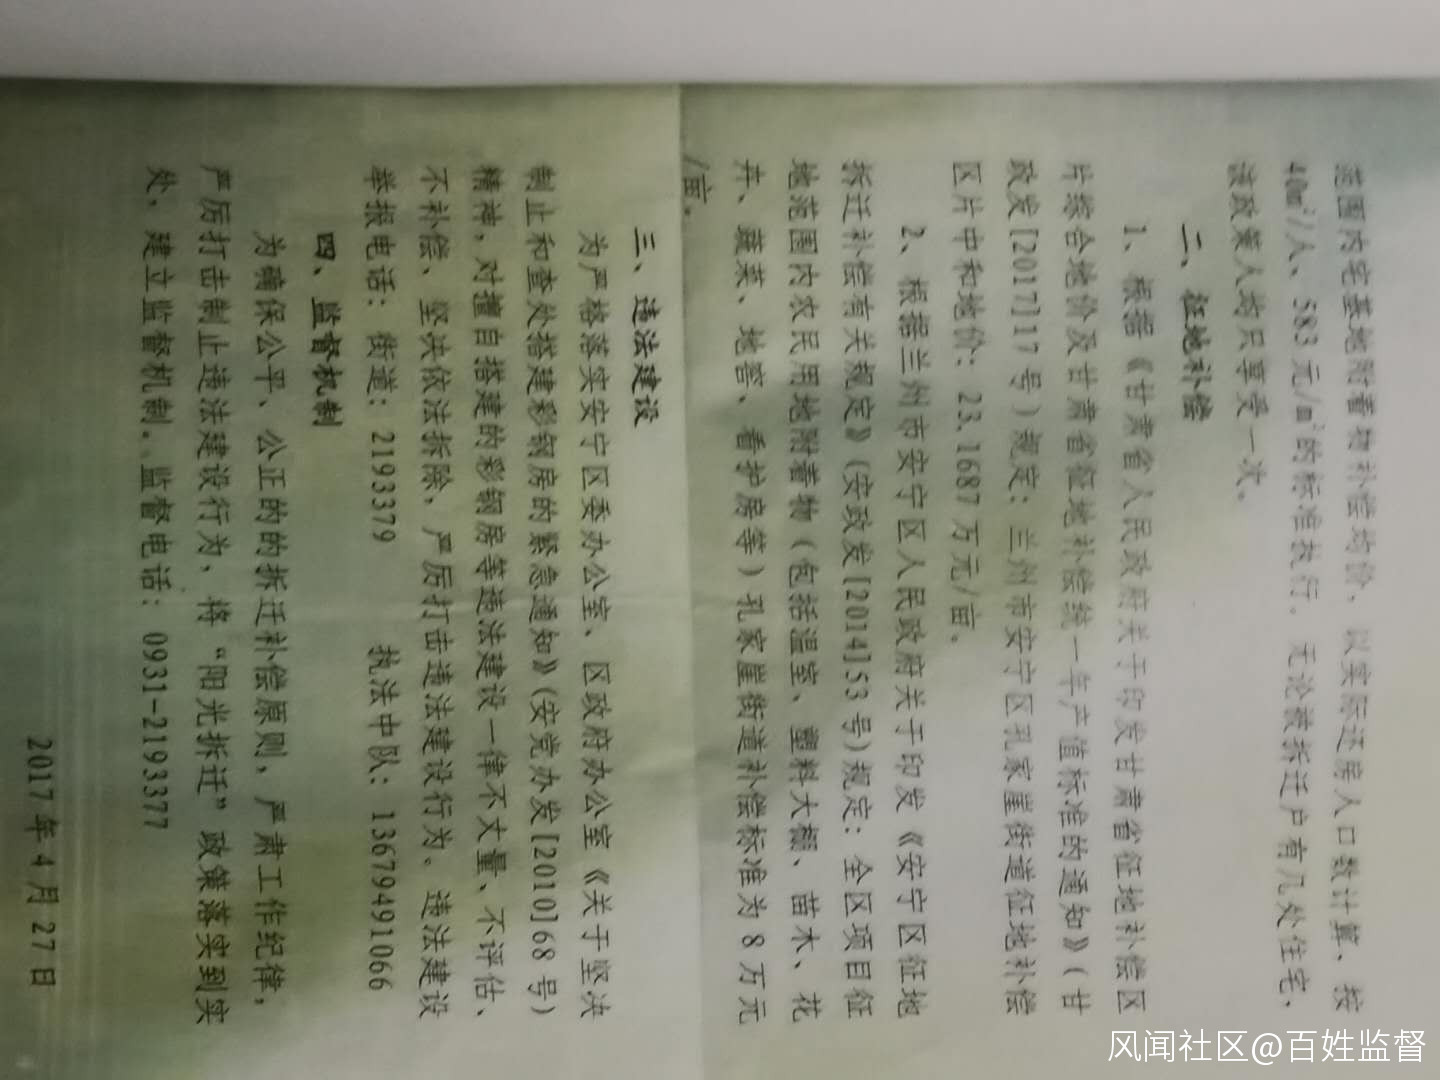 范围内宅基地附着物补偿均价，以实际还房人口数计算、按
40m²/人、583元/m²的标准执行。无论被拆迁户有几处住宅，
该政策人均只享受一次。
二、征地补偿
1、根据《甘肃省人民政府关于印发甘肃省征地补偿区
片综合地价及甘肃省征地补偿统一年产值标准的通知》（甘
政发[2017]17号）规定：兰州市安宁区孔家崖街道征地补偿
区片中和地价：23.1687万元/亩。
2、根据兰州市安宁区人民政府关于印发《安宁区征地
拆迁补偿有关规定》（安政发[2014]53号）规定：全区项目征
地范围内农民用地附着物（包括温室、塑料大棚、苗木、花
卉、蔬菜、地窖、看护房等）孔家崖街道补偿标准为8万元
/亩。
三、违法建设
为严格落实安宁区委办公室、区政府办公室《关于坚决
制止和查处搭建彩钢房的紧急通知》（安党办发[2010]68号）
精神，对擅自搭建的彩钢房等违法建设一律不丈量、不评估、
不补偿、坚决依法拆除，严厉打击违法建设行为。违法建设
举报电话：街道：2193379 执法中队：13679491066
四、监督机制
为确保公平、公正的的拆迁补偿原则，严肃工作纪律，
严厉打击制止违法建设行为，将“阳光拆迁”政策落实到实
处，建立监督机制。监督电话：0931-2193377
2017年4月27日
风闻社区@百姓监督